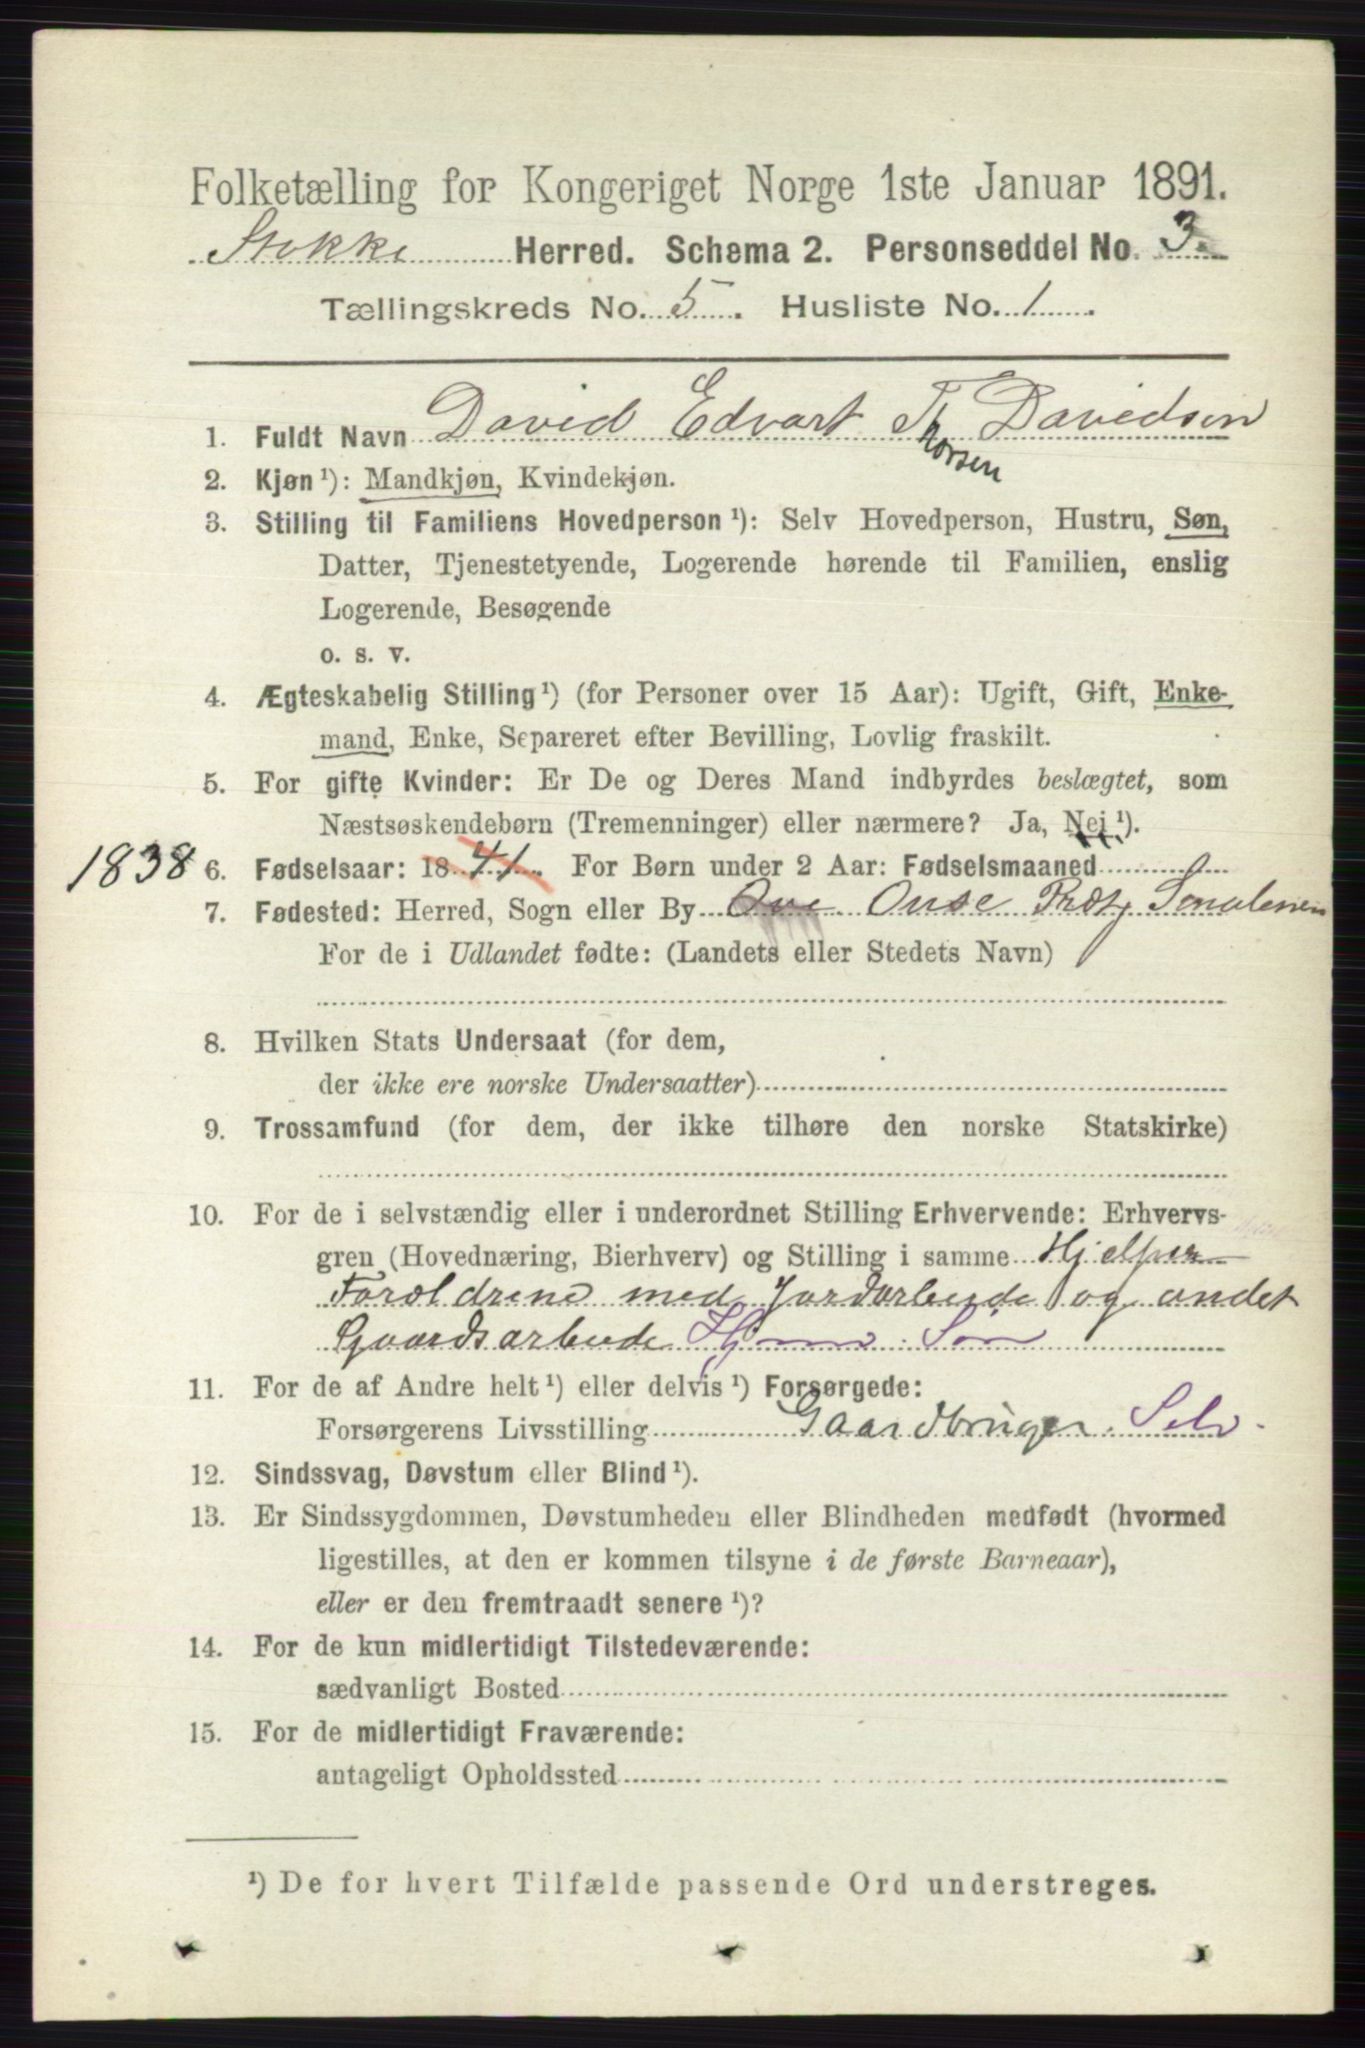 Folketælling for Kongeriget Norge 1ste Januar 1891.
Stokke Herred. Schema 2. Personseddel No. 3.
Tællingskreds No. 5. Husliste No. 1.
1. Fuldt Navn David Edvart Th Davidsen
Thorsen
2. Kjøn ¹): Mandkjøn, Kvindekjøn.
3. Stilling til Familiens Hovedperson ¹): Selv Hovedperson, Hustru, Søn,
Datter, Tjenestetyende, Logerende hørende til Familien, enslig
Logerende, Besøgende
o. s. v.
4. Ægteskabelig Stilling ¹) (for Personer over 15 Aar): Ugift, Gift, Enke-
mand, Enke, Separeret efter Bevilling, Lovlig fraskilt.
5. For gifte Kvinder: Er De og Deres Mand indbyrdes beslægtet, som
Næstsøskendebørn (Tremenninger) eller nærmere? Ja, Nei ¹).
1838 6. Fødselsaar: 1841. For Børn under 2 Aar: Fødselsmaaned
7. Fødested: Herred, Sogn eller By Onse Præstg Smalenen
For de i Udlandet fødte: (Landets eller Stedets Navn)
8. Hvilken Stats Undersaat (for dem,
der ikke ere norske Undersaatter)
9. Trossamfund (for dem, der ikke tilhøre den norske Statskirke)
10. For de i selvstændig eller i underordnet Stilling Erhvervende: Erhvervs-
gren (Hovednæring, Bierhverv) og Stilling i samme Hjelper
Foræl drene med Jordarbeide og andet
Gaardsarbeide Hjmv. Søn
11. For de af Andre helt ¹) eller delvis ¹) Forsørgede:
Forsørgerens Livsstilling Gaardbruger. Selv.
12. Sindssvag, Døvstum eller Blind ¹).
13. Er Sindssygdommen, Døvstumheden eller Blindheden medfødt (hvormed
ligestilles, at den er kommen tilsyne i de første Barneaar),
eller er den fremtraadt senere ¹)?
14. For de kun midlertidigt Tilstedeværende:
sædvanligt Bosted
15. For de midlertidigt Fraværende:
antageligt Opholdssted
¹) De for hvert Tilfælde passende Ord understreges.